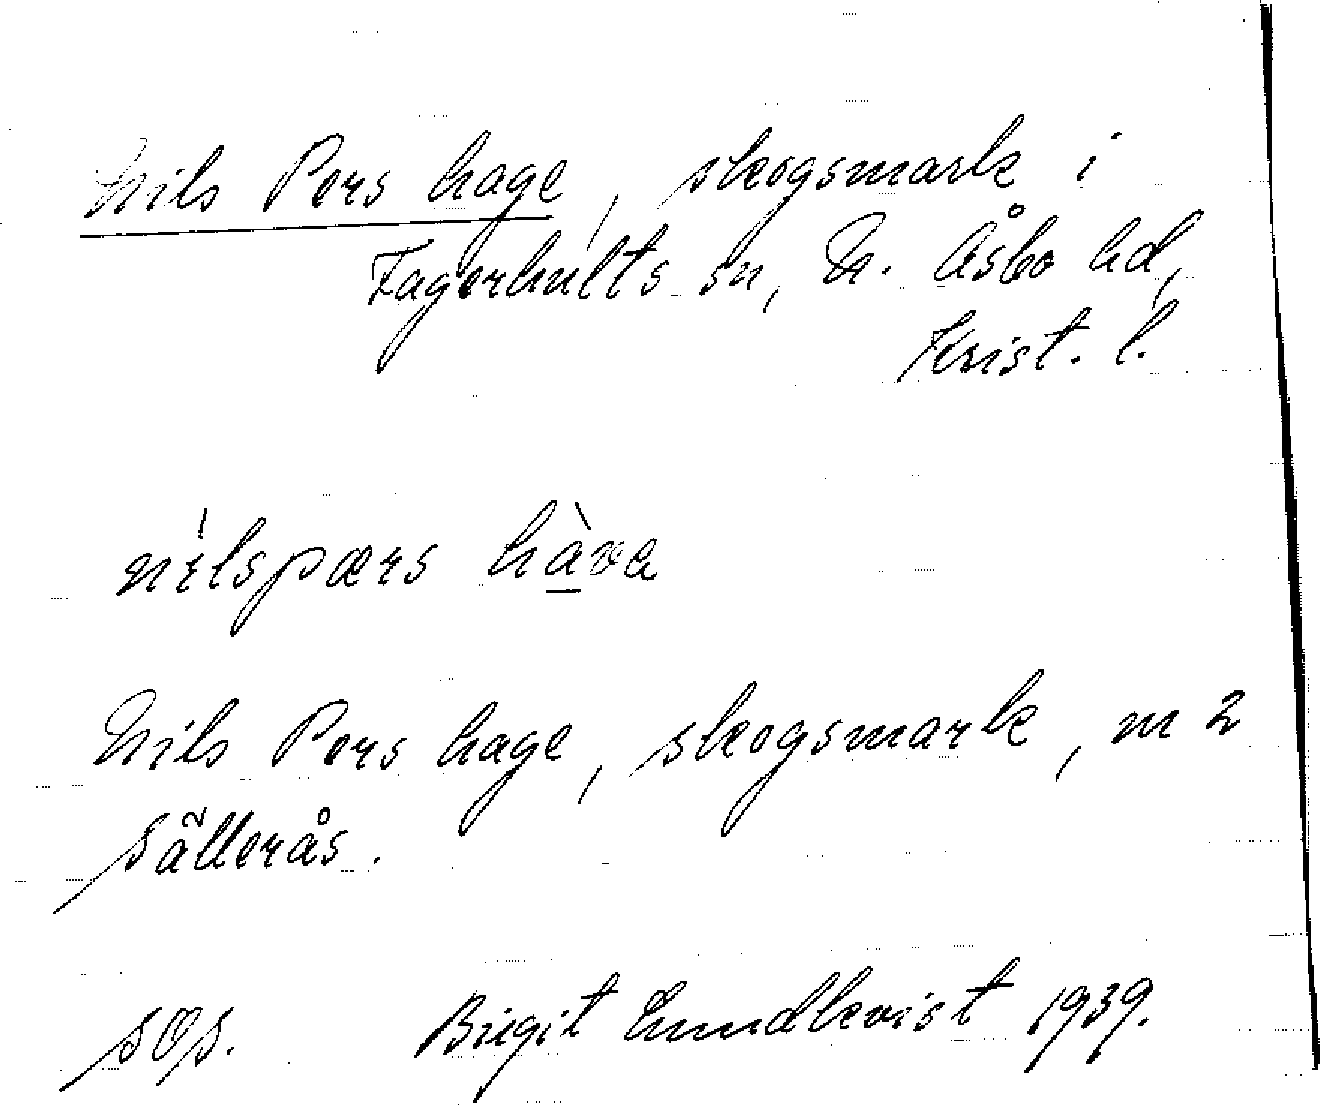 Nils Pers hage, skogsmark i
Fagerhults sn, N. Åsbo hd,
Krist. l.
nilspærs hàva
Nils Pers hage, skogsmark, m 2
Sällerås.
SOS. Birgit Lundkvist 1939.